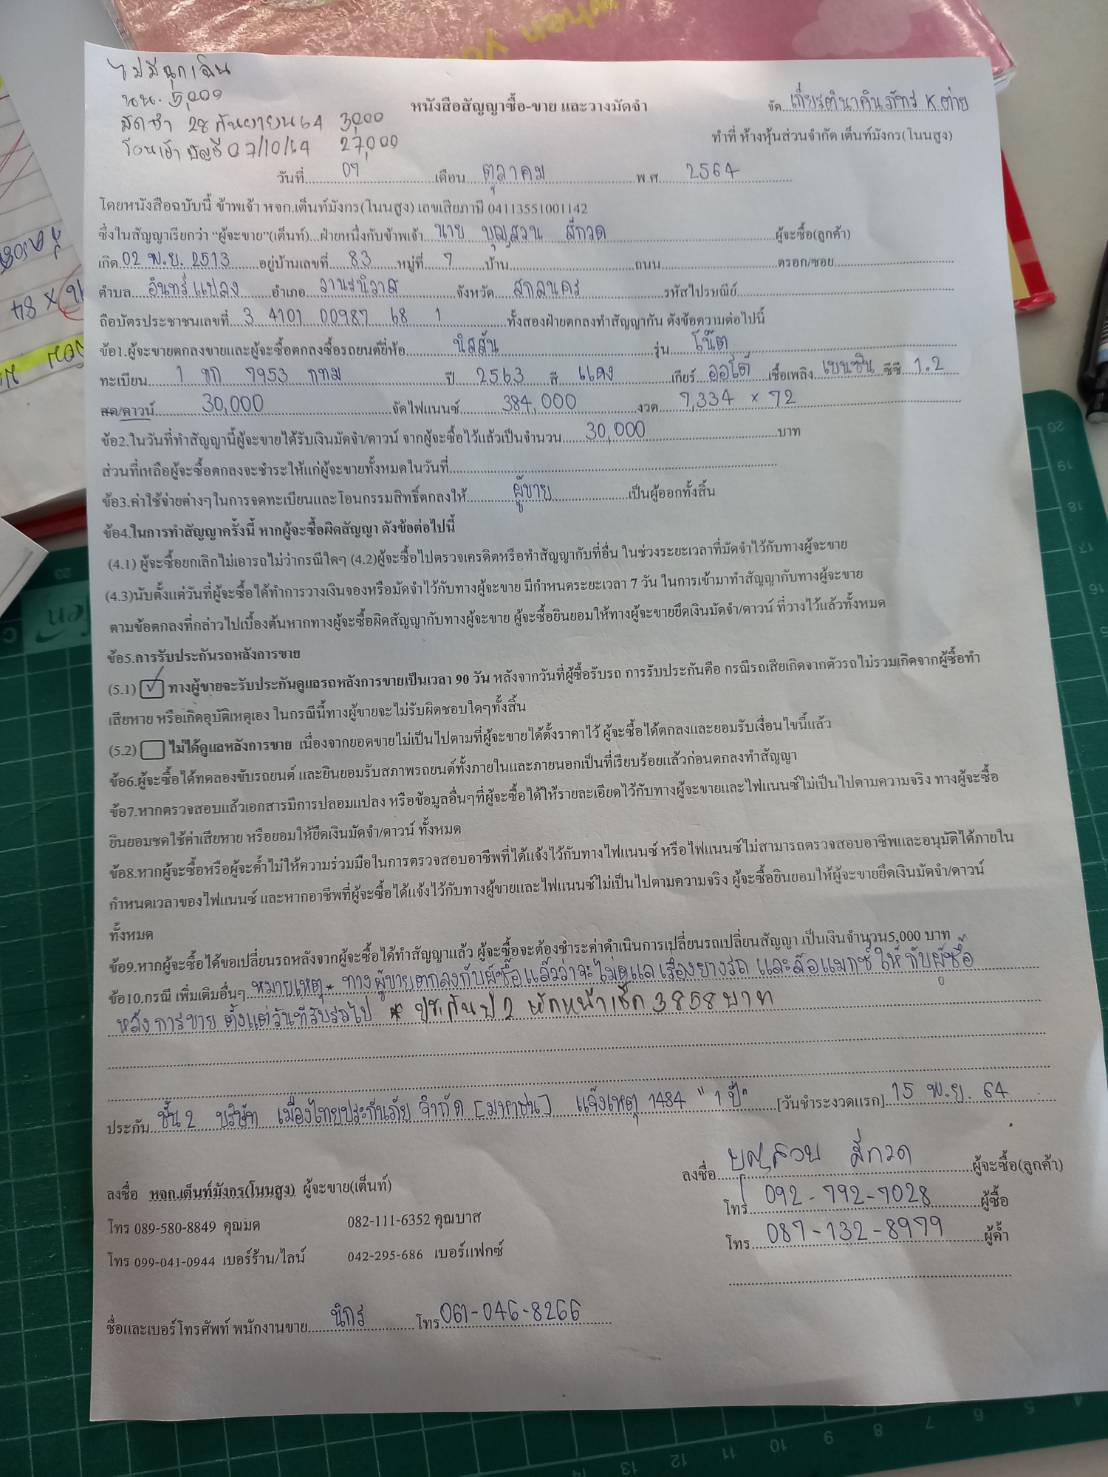 ไม่มีฉุกเฉิน
นน. 5,000
มัดจำ 28 กันยายน 64 3000
โอนเข้า บัญชี 07/10/64 27,000
หนังสือสัญญาซื้อ-ขาย และวางมัดจำ
จัด เกียรตินาคินภัทร K.ต่าย
ทำที่ ห้างหุ้นส่วนจำกัด เต็นท์มังกร(โนนสูง)
วันที่ 07 เดือน ตุลาคม พ.ศ. 2564
โดยหนังสือฉบับนี้ ข้าพเจ้า หจก.เต็นท์มังกร(โนนสูง) เลขเสียภาษี 04113551001142
ซึ่งในสัญญาเรียกว่า "ผู้จะขาย"(เต็นท์)...ฝ่ายหนึ่งกับข้าพเจ้า นาย บุญสวน สีกวด ผู้จะซื้อ(ลูกค้า)
เกิด 02 พ.ย. 2513 อยู่บ้านเลขที่ 83 หมู่ที่ 7 บ้าน ถนน ตรอก/ซอย
ตำบล อินทร์แปลง อำเภอ วานรนิวาส จังหวัด สกลนคร รหัสไปรษณีย์
ถือบัตรประชาชนเลขที่ 3 4101 00987 68 1 ทั้งสองฝ่ายตกลงทำสัญญากัน ดังข้อความต่อไปนี้
ข้อ1.ผู้จะขายตกลงขายและผู้จะซื้อตกลงซื้อรถยนต์ยี่ห้อ นิสสัน รุ่น โน๊ต
ทะเบียน 1 ขก 7953 กทม ปี 2563 สี แดง เกียร์ ออโต้ เชื้อเพลิง เบนซิน ซีซี 1.2
สด/ดาวน์ 30,000 จัดไฟแนนซ์ 384,000 งวด 7,334 x 72
ข้อ2.ในวันที่ทำสัญญานี้ผู้จะขายได้รับเงินมัดจำ/ดาวน์ จากผู้จะซื้อไว้แล้วเป็นจำนวน 30,000 บาท
ส่วนที่เหลือผู้จะซื้อตกลงจะชำระให้แก่ผู้จะขายทั้งหมดในวันที่
ข้อ3.ค่าใช้จ่ายต่างๆในการจดทะเบียนและโอนกรรมสิทธิ์ตกลงให้ ผู้ขาย เป็นผู้ออกทั้งสิ้น
ข้อ4.ในการทำสัญญาครั้งนี้ หากผู้จะซื้อผิดสัญญา ดังข้อต่อไปนี้
(4.1) ผู้จะซื้อยกเลิกไม่เอารถไม่ว่ากรณีใดๆ (4.2)ผู้จะซื้อไปตรวจเครดิตหรือทำสัญญากับที่อื่น ในช่วงระยะเวลาที่มัดจำไว้กับทางผู้จะขาย
(4.3)นับตั้งแต่วันที่ผู้จะซื้อได้ทำการวางเงินจองหรือมัดจำไว้กับทางผู้จะขาย มีกำหนดระยะเวลา 7 วัน ในการเข้ามาทำสัญญากับทางผู้จะขาย
ตามข้อตกลงที่กล่าวไปเบื้องต้นหากทางผู้จะซื้อผิดสัญญากับทางผู้จะขาย ผู้จะซื้อยินยอมให้ทางผู้จะขายยึดเงินมัดจำ/ดาวน์ ที่วางไว้แล้วทั้งหมด
ข้อ5.การรับประกันรถหลังการขาย
(5.1) ✓ ทางผู้ขายจะรับประกันดูแลรถหลังการขายเป็นเวลา 90 วัน หลังจากวันที่ผู้ซื้อรับรถ การรับประกันคือ กรณีรถเสียเกิดจากตัวรถไม่รวมเกิดจากผู้ซื้อทำ
เสียหาย หรือเกิดอุบัติเหตุเอง ในกรณีนี้ทางผู้ขายจะไม่รับผิดชอบใดๆทั้งสิ้น
(5.2) ไม่ได้ดูแลหลังการขาย เนื่องจากยอดขายไม่เป็นไปตามที่ผู้จะขายได้ตั้งราคาไว้ ผู้จะซื้อได้ตกลงและยอมรับเงื่อนไขนี้แล้ว
ข้อ6.ผู้จะซื้อได้ทดลองขับรถยนต์ และยินยอมรับสภาพรถยนต์ทั้งภายในและภายนอกเป็นที่เรียบร้อยแล้วก่อนตกลงทำสัญญา
ข้อ7.หากตรวจสอบแล้วเอกสารมีการปลอมแปลง หรือข้อมูลอื่นๆที่ผู้จะซื้อได้ให้รายละเอียดไว้กับทางผู้จะขายและไฟแนนซ์ไม่เป็นไปตามความจริง ทางผู้จะซื้อ
ยินยอมชดใช้ค่าเสียหาย หรือยอมให้ยึดเงินมัดจำ/ดาวน์ ทั้งหมด
ข้อ8.หากผู้จะซื้อหรือผู้จะค้ำไม่ให้ความร่วมมือในการตรวจสอบอาชีพที่ได้แจ้งไว้กับทางไฟแนนซ์ หรือไฟแนนซ์ไม่สามารถตรวจสอบอาชีพและอนุมัติได้ภายใน
กำหนดเวลาของไฟแนนซ์ และหากอาชีพที่ผู้จะซื้อได้แจ้งไว้กับทางผู้ขายและไฟแนนซ์ไม่เป็นไปตามความจริง ผู้จะซื้อยินยอมให้ผู้จะขายยึดเงินมัดจำ/ดาวน์
ทั้งหมด
ข้อ9.หากผู้จะซื้อได้ขอเปลี่ยนรถหลังจากผู้จะซื้อได้ทำสัญญาแล้ว ผู้จะซื้อจะต้องชำระค่าดำเนินการเปลี่ยนรถเปลี่ยนสัญญา เป็นเงินจำนวน5,000 บาท
ข้อ10.กรณี เพิ่มเติมอื่นๆ หมายเหตุ* ทางผู้ขายตกลงกับผู้ซื้อแล้วว่าจะไม่ดูแลเรื่องยางรถ และล้อแมกซ์ ให้ กับผู้ซื้อ
หลังการขาย ตั้งแต่วันที่รับรถไป * ประกันป 2 หักหน้าเช็ค 3858 บาท
ประกัน ชั้น 2 บริษัท เมืองไทยประกันภัย จำกัด [มหาชน] แจ้งเหตุ 1484 "1 ปี" [วันชำระงวดแรก] 15 พ.ย. 64
ลงชื่อ บุญสวน สีกวด ผู้จะซื้อ(ลูกค้า)
ลงชื่อ หจก.เต็นท์มังกร(โนนสูง) ผู้จะขาย(เต็นท์)
โทร 092-792-7028 ผู้ซื้อ
โทร 089-580-8849 คุณมด 082-111-6352 คุณบาส
โทร 087-132-8979 ผู้ค้ำ
โทร 099-041-0944 เบอร์ร้าน/ไลน์ 042-295-686 เบอร์แฟกซ์
ชื่อและเบอร์โทรศัพท์ พนักงานขาย นิกร โทร 061-046-8266